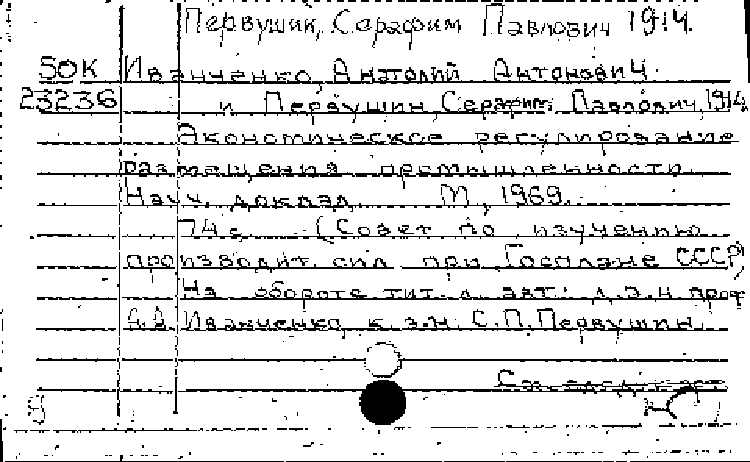 Первушин, Серафим Павлович 1914.
SOK Иванченко, Анатолий Антонович.
23236 и Первушин, Серафим Павлович, 1914
Экономическое регулирование
размещения промышленности.
Науч. доклад. М., 1969.
74 с. (Совет по изучению
производит. сил при Госплане СССР)
На обороте тит. л. авт.: д.э.н. проф.
А.А. Иванченко, к.э.н. С.П. Первушин.